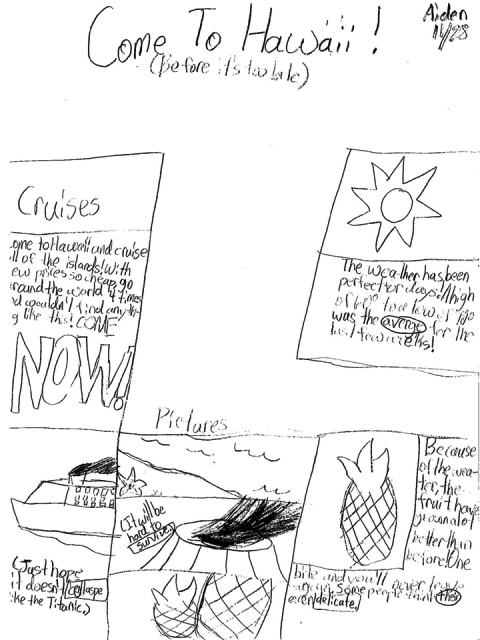 Come To Hawaii!
(Before it's too late)
Aiden
11/28
Cruises
ome to Hawaii and cruise
ll of the islands! With
ew prices so cheap, go
round the world 4 times
d wouldn't find any
g like this! COME
NOW!
The weather has been
perfect for days! A high
of to a low of
was the average for the
last few weeks!
Pictures
(It will be
hard to
survive)
(Just hope
it doesn't collaspe
like the Titanic.)
Because
of the wea-
ter, the
fruit have
grown a lot
better than
before! One
bite and you'll never leave
again. Some people think their
even delicate.